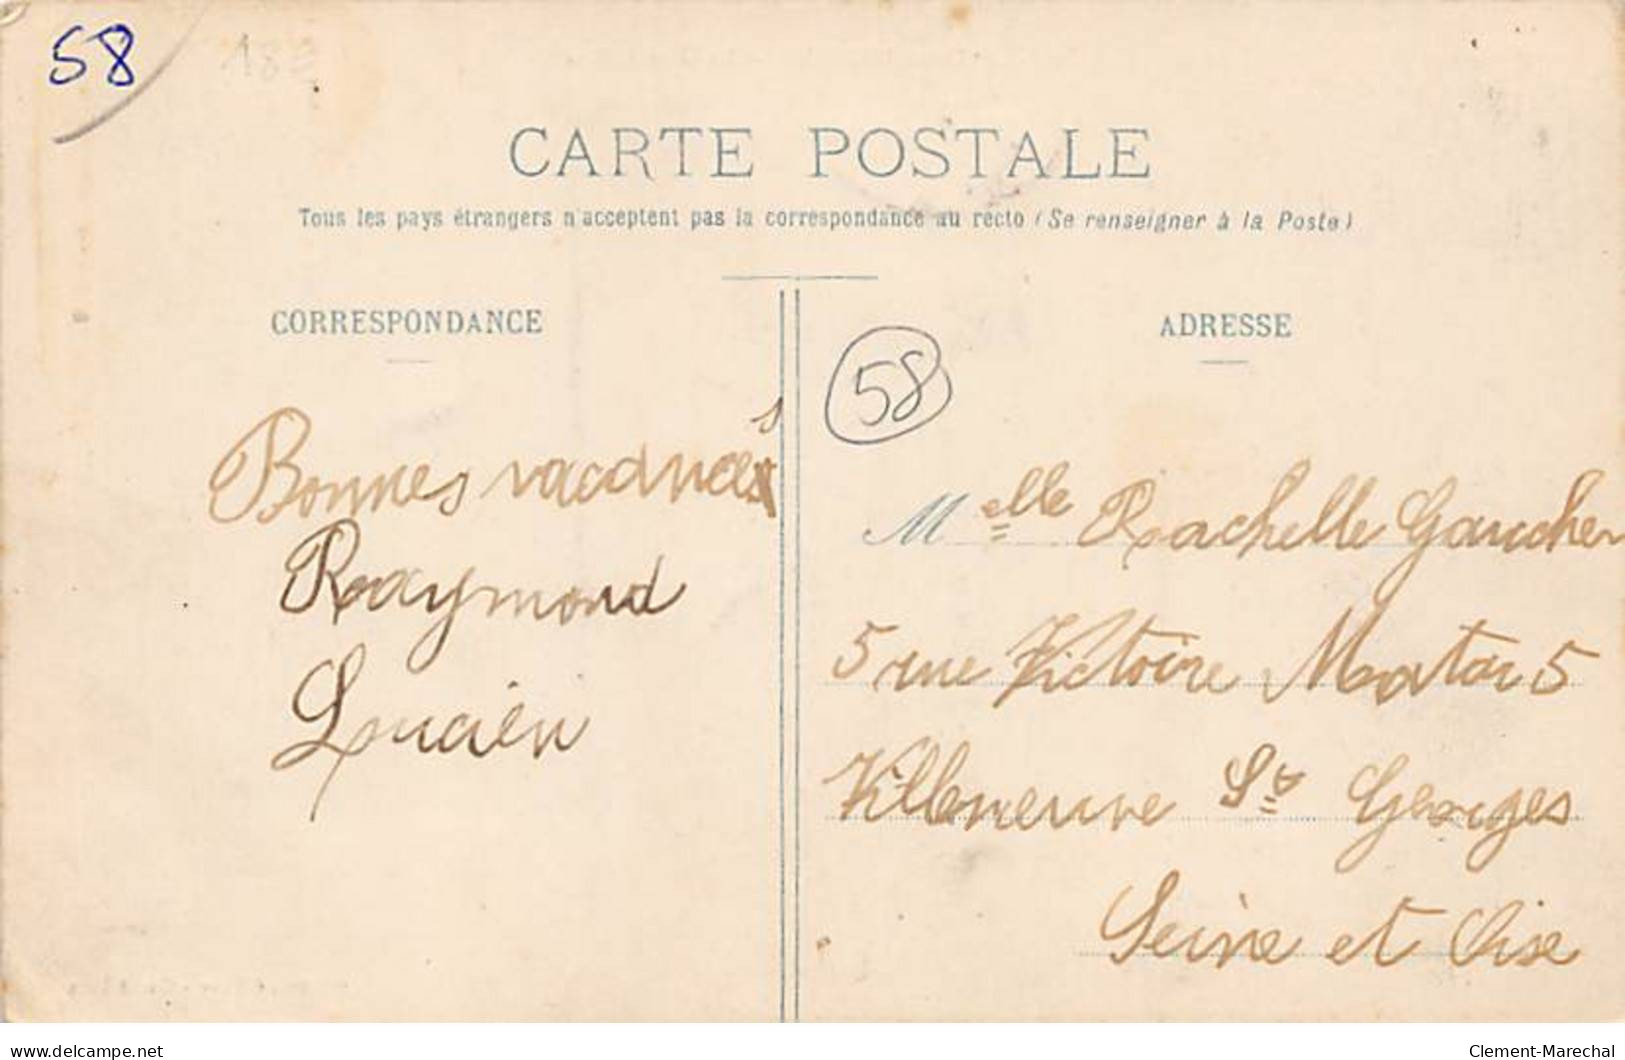 58
CARTE POSTALE
Tous les pays étrangers n'acceptent pas la correspondance au recto (Se renseigner à la Poste)
CORRESPONDANCE
ADRESSE
58
Bonnes vacances
Raymond
Lucien
Melle Rachelle Gaucher
5 rue Victoire 5
Villeneuve St Georges
Seine et Oise
delcampe.net
Clement-Marechal